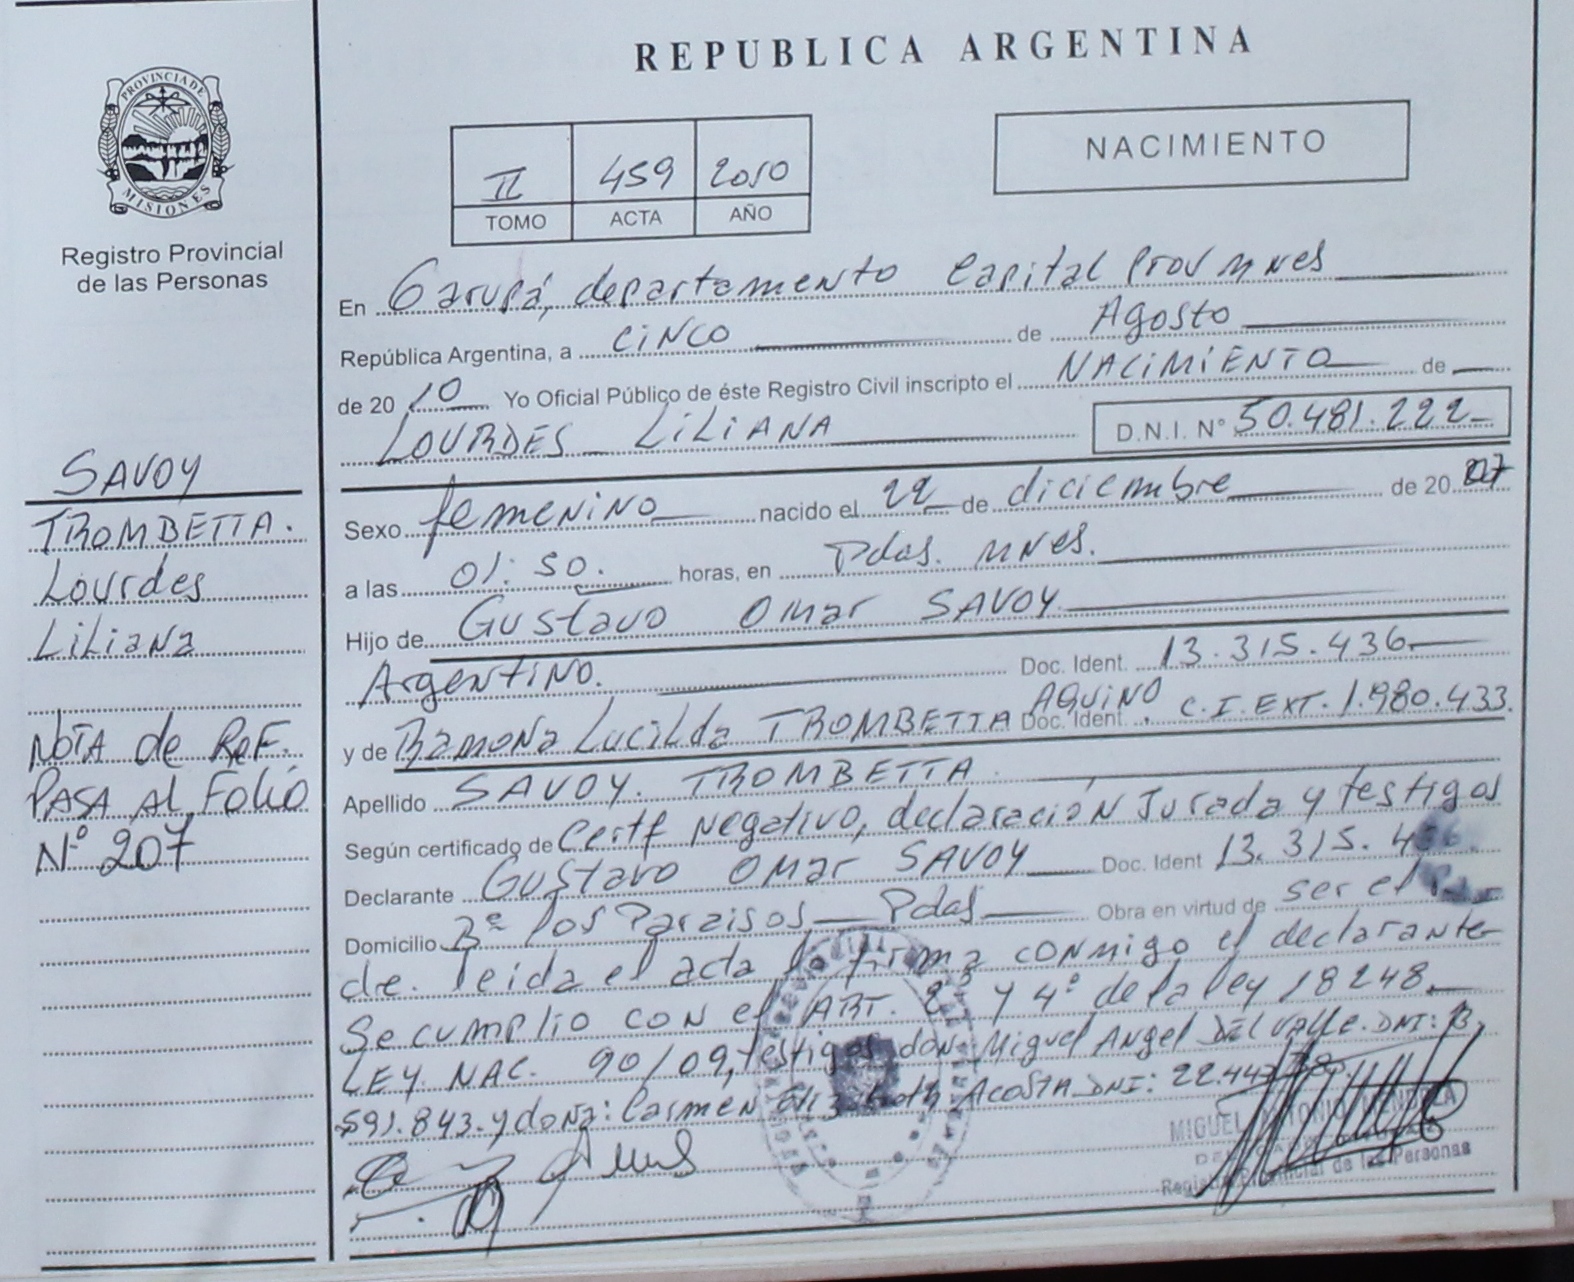 PROVINCIA DE
MISIONES
Registro Provincial
de las Personas
SAVOY
TROMBETTA.
Lourdes
Liliana
NOTA de REF.
PASA AL FOLIO
Nº 207
REPUBLICA ARGENTINA
II 459 2010
TOMO ACTA AÑO
NACIMIENTO
En Garupá, departamento Capital Prov Mnes
República Argentina, a CINCO de Agosto
de 2010 Yo Oficial Público de éste Registro Civil inscripto el NACIMIENTO de
LOURDES LILIANA D.N.I. Nº 50.481.222
Sexo femenino nacido el 22 de diciembre de 2007
a las 01:50. horas, en Pdas. Mnes.
Hijo de Gustavo Omar SAVOY
Argentino. Doc. Ident. 13.315.436
y de Ramona Lucilda TROMBETTA AQUINO Doc. Ident. C.I. EXT. 1.980.433.
Apellido SAVOY. TROMBETTA
Según certificado de Certf Negativo, declaración Jurada y testigos
Declarante Gustavo Omar SAVOY Doc. Ident 13.315.436
Domicilio Bº los Paraisos Pdas Obra en virtud de ser el
dre. leida el acta la firma conmigo el declarante
Se cumplio con el ART. 2º y 4º de la ley 18248.
LEY. NAC. 90/09, testigos don: Miguel Angel DEL VALLE. DNI: 13,
591.843. y doña: Carmen Elizabeth ACOSTA DNI: 22.442
MIGUEL ANTONIO MENDOZA
Registro Provincial de las Personas